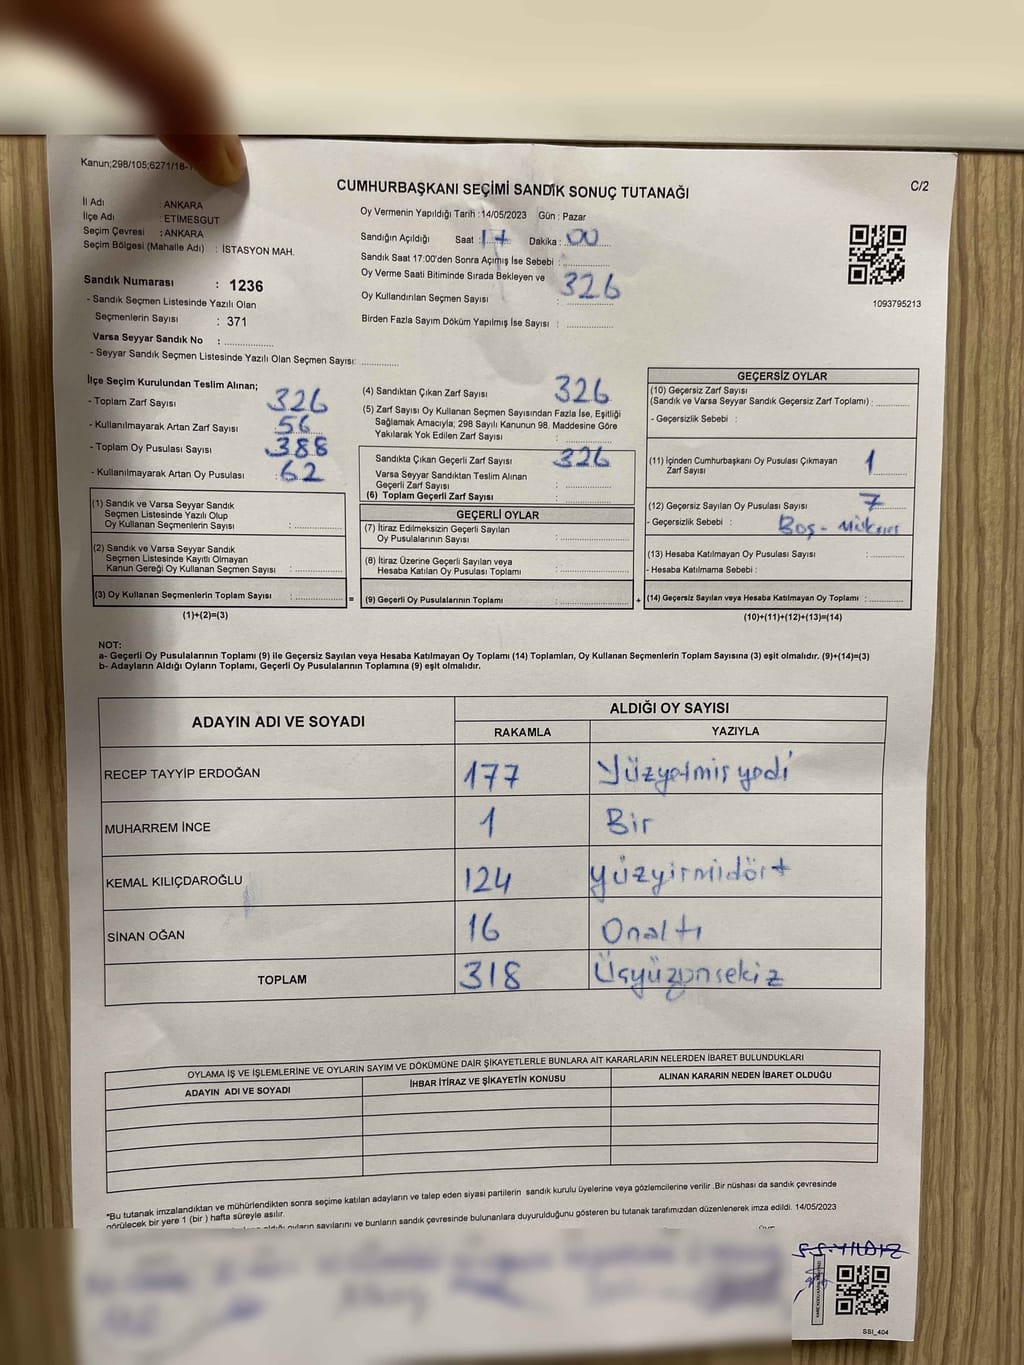 Kanun;298/105;6271/18-
CUMHURBAŞKANI SEÇİMİ SANDIK SONUÇ TUTANAĞI
C/2
İl Adı : ANKARA
İlçe Adı : ETİMESGUT
Seçim Çevresi : ANKARA
Seçim Bölgesi (Mahalle Adı) : İSTASYON MAH.
Oy Vermenin Yapıldığı Tarih :14/05/2023 Gün : Pazar
Sandığın Açıldığı Saat : 17 Dakika : 00
Sandık Saat 17:00'den Sonra Açımış İse Sebebi :
Oy Verme Saati Bitiminde Sırada Bekleyen ve
Oy Kullandırılan Seçmen Sayısı : 326
Birden Fazla Sayım Döküm Yapılmış İse Sayısı :
1093795213
Sandık Numarası : 1236
- Sandık Seçmen Listesinde Yazılı Olan
Seçmenlerin Sayısı : 371
Varsa Seyyar Sandık No :
- Seyyar Sandık Seçmen Listesinde Yazılı Olan Seçmen Sayısı:
İlçe Seçim Kurulundan Teslim Alınan;
- Toplam Zarf Sayısı 326
- Kullanılmayarak Artan Zarf Sayısı : 56
- Toplam Oy Pusulası Sayısı : 388
- Kullanılmayarak Artan Oy Pusulası : 62
(1) Sandık ve Varsa Seyyar Sandık
Seçmen Listesinde Yazılı Olup
Oy Kullanan Seçmenlerin Sayısı :
(2) Sandık ve Varsa Seyyar Sandık
Seçmen Listesinde Kayıtlı Olmayan
Kanun Gereği Oy Kullanan Seçmen Sayısı :
(3) Oy Kullanan Seçmenlerin Toplam Sayısı :
(1)+(2)=(3)
(4) Sandıktan Çıkan Zarf Sayısı 326
(5) Zarf Sayısı Oy Kullanan Seçmen Sayısından Fazla İse, Eşitliği
Sağlamak Amacıyla; 298 Sayılı Kanunun 98. Maddesine Göre
Yakılarak Yok Edilen Zarf Sayısı :
Sandıkta Çıkan Geçerli Zarf Sayısı : 326
Varsa Seyyar Sandıktan Teslim Alınan
Geçerli Zarf Sayısı :
(6) Toplam Geçerli Zarf Sayısı :
GEÇERLİ OYLAR
(7) İtiraz Edilmeksizin Geçerli Sayılan
Oy Pusulalarının Sayısı :
(8) İtiraz Üzerine Geçerli Sayılan veya
Hesaba Katılan Oy Pusulası Toplamı :
= (9) Geçerli Oy Pusulalarının Toplamı :
GEÇERSİZ OYLAR
(10) Geçersiz Zarf Sayısı
(Sandık ve Varsa Seyyar Sandık Geçersiz Zarf Toplamı) :
- Geçersizlik Sebebi :
(11) İçinden Cumhurbaşkanı Oy Pusulası Çıkmayan
Zarf Sayısı : 1
(12) Geçersiz Sayılan Oy Pusulası Sayısı : 7
- Geçersizlik Sebebi : Boş -
(13) Hesaba Katılmayan Oy Pusulası Sayısı :
- Hesaba Katılmama Sebebi :
+ (14) Geçersiz Sayılan veya Hesaba Katılmayan Oy Toplamı :
(10)+(11)+(12)+(13)=(14)
NOT:
a- Geçerli Oy Pusulalarının Toplamı (9) ile Geçersiz Sayılan veya Hesaba Katılmayan Oy Toplamı (14) Toplamları, Oy Kullanan Seçmenlerin Toplam Sayısına (3) eşit olmalıdır. (9)+(14)=(3)
b- Adayların Aldığı Oyların Toplamı, Geçerli Oy Pusulalarının Toplamına (9) eşit olmalıdır.
ADAYIN ADI VE SOYADI
ALDIĞI OY SAYISI
RAKAMLA YAZIYLA
RECEP TAYYİP ERDOĞAN 177 Yüzyetmiş yedi
MUHARREM İNCE 1 Bir
KEMAL KILIÇDAROĞLU 124 yüzyirmidört
SİNAN OĞAN 16 Onaltı
TOPLAM 318 Üçyüzonsekiz
OYLAMA İŞ VE İŞLEMLERİNE VE OYLARIN SAYIM VE DÖKÜMÜNE DAİR ŞİKAYETLERLE BUNLARA AİT KARARLARIN NELERDEN İBARET BULUNDUKLARI
ADAYIN ADI VE SOYADI İHBAR İTİRAZ VE ŞİKAYETİN KONUSU ALINAN KARARIN NEDEN İBARET OLDUĞU
*Bu tutanak imzalandıktan ve mühürlendikten sonra seçime katılan adayların ve talep eden siyasi partilerin sandık kurulu üyelerine veya gözlemcilerine verilir .Bir nüshası da sandık çevresinde
görülecek bir yere 1 (bir ) hafta süreyle asılır.
oyların sayılarını ve bunların sandık çevresinde bulunanlara duyurulduğunu gösteren bu tutanak tarafımızdan düzenlenerek imza edildi. 14/05/2023
S.S.YILDIZ
SSI_404